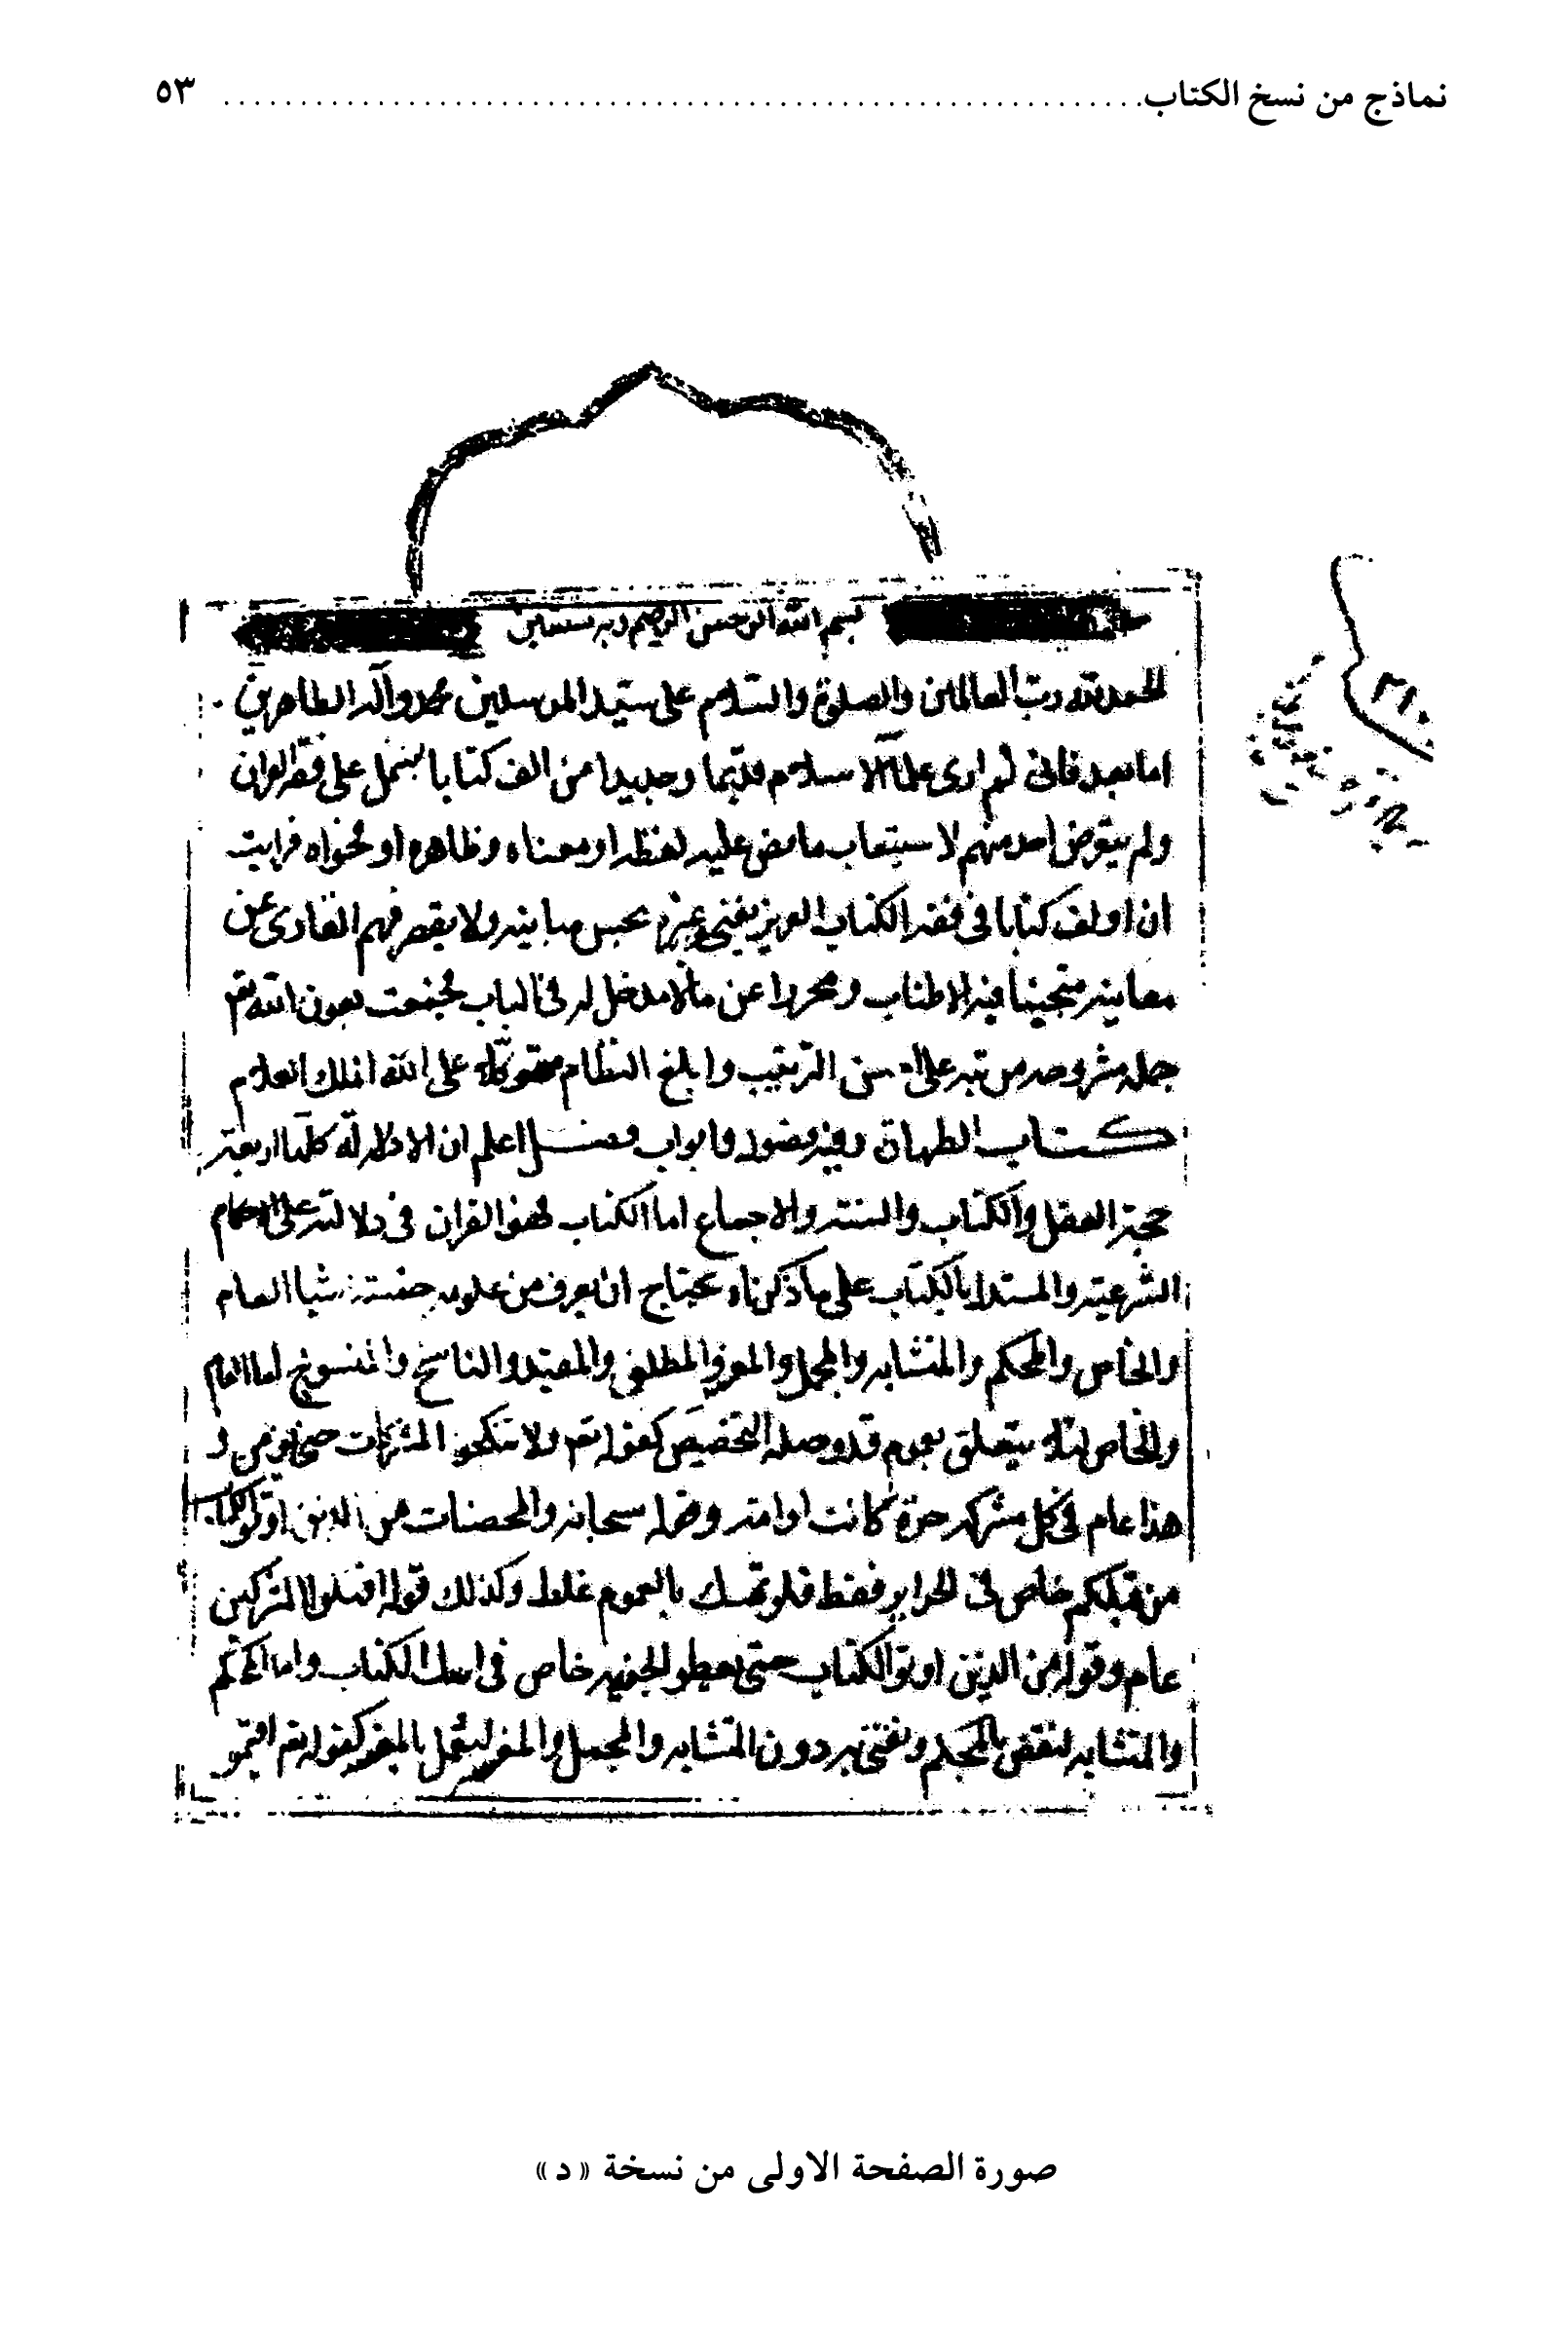 نماذج من نسخ الكتاب ........................................................ ٥٣
بسم الله الرحمن الرحيم وبه نستعين
الحمد لله رب العالمين والصلوة والسلام على سيد المرسلين محمد وآله الطاهرين
اما بعد فانى لم ارى علماء الاسلام قديما وحديدا من الف كتابا يشتمل على فقه القران
ولم يتعرض احد منهم لاستيعاب ما نص عليه لفظه او معناه وظاهره او فحواه فرايت
ان اولف كتابا فى فقه الكتاب العزيز يغنى عن غيره بحسن مبانيه ولا يقصر فهم القارى عن
معانيه متجنبا فيه الاطناب ومحررا عن مالا مدخل له فى الباب فجمعت بعون الله تعم
جمله مشروحه مرتبه على احسن الترتيب وابلغ النظام متوكلا على الله الملك العلام
كتاب الطهارة وفيه فصول وابواب فصل اعلم ان الادلة كلها اربعة
حجة العقل والكتاب والسنة والاجماع اما الكتاب فهو القران فى دلالته على الاحكام
الشرعية والمستدل بالكتاب على ما ذكرناه يحتاج ان يعرف من علومه خمسة اشيا العام
والخاص والمحكم والمتشابه والمجمل والمفسر والمطلق والمقيد والناسخ والمنسوخ اما العام
والخاص لئلا يتعلق بعموم قد دخله التخصيص كقوله تعم ولا تنكحوا المشركات حتى يومن و
هذا عام فى كل مشركه حرة كانت او امة وقوله سبحانه والمحصنات من الذين اوتوا الكتاب
من قبلكم خاص فى الحراير فقط فلو تمسك بالعموم غلط وكذلك قوله اقتلوا المشركين
عام وقوله من الذين اوتوا الكتاب حتى يعطوا الجزية خاص فى اهل الكتاب واما المحكم
والمتشابه ليقضى بالمحكم ويفتى به دون المتشابه والمجمل والمفسر ليعمل بالمفسر كقوله تعم اقيموا
صورة الصفحة الاولى من نسخة «د»